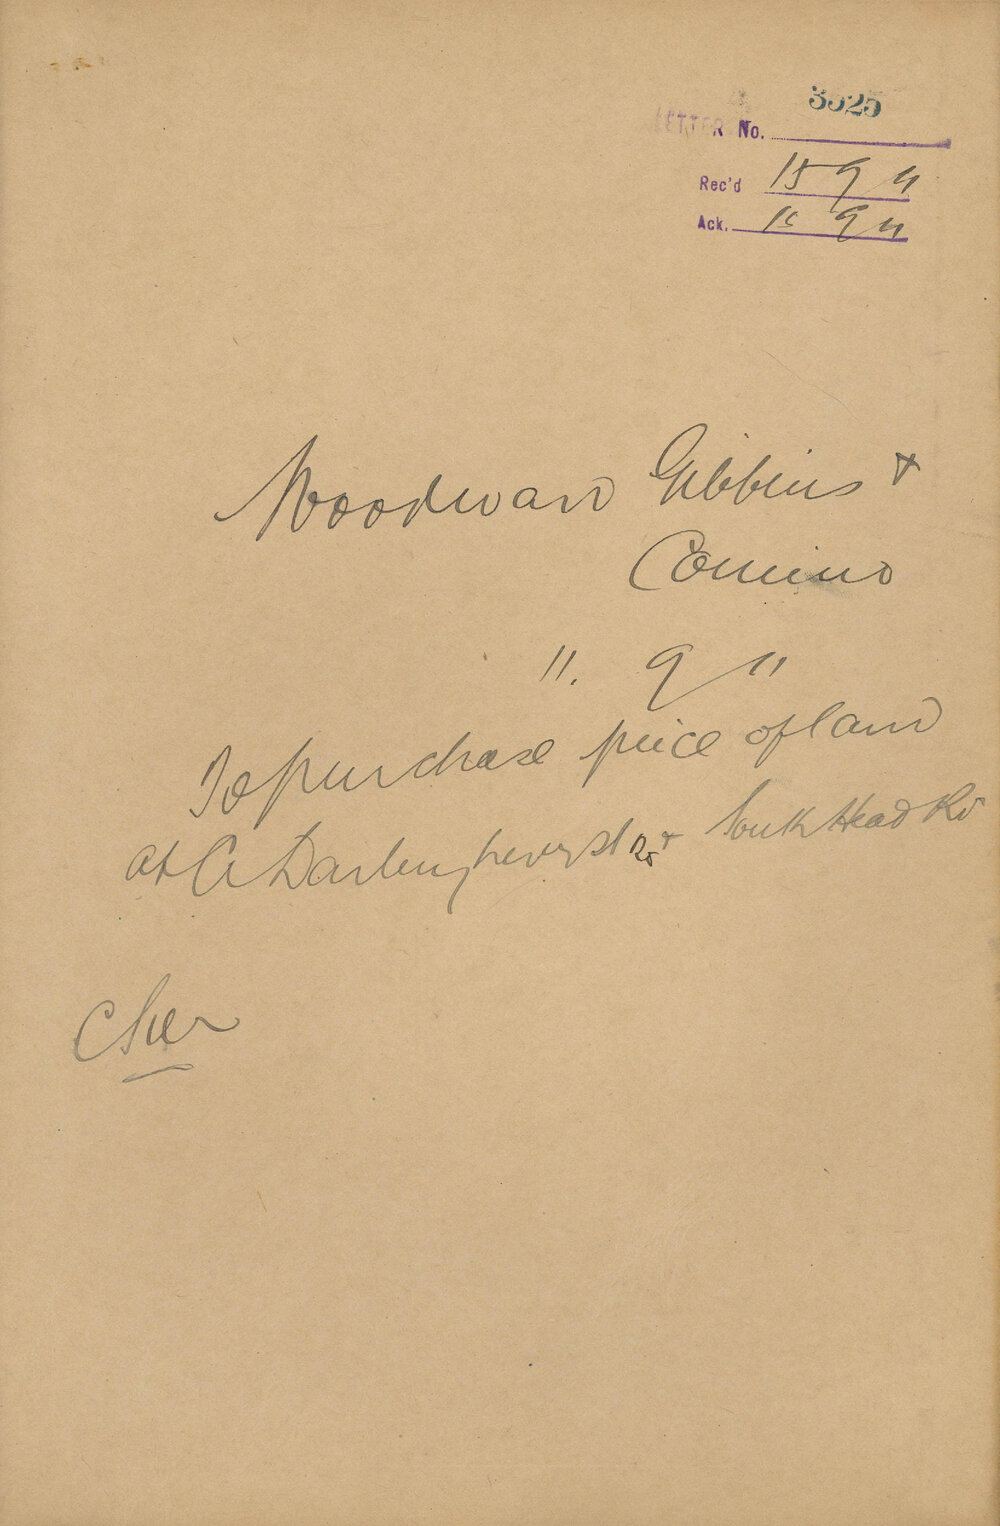 3525
LETTER No.
Rec'd 15 9 11
Ack. 15 9 11
Woodward Gibbins &
Comino
11. 9 11
To purchase piece of land
at Darlinghurst Rd & South Head Rd